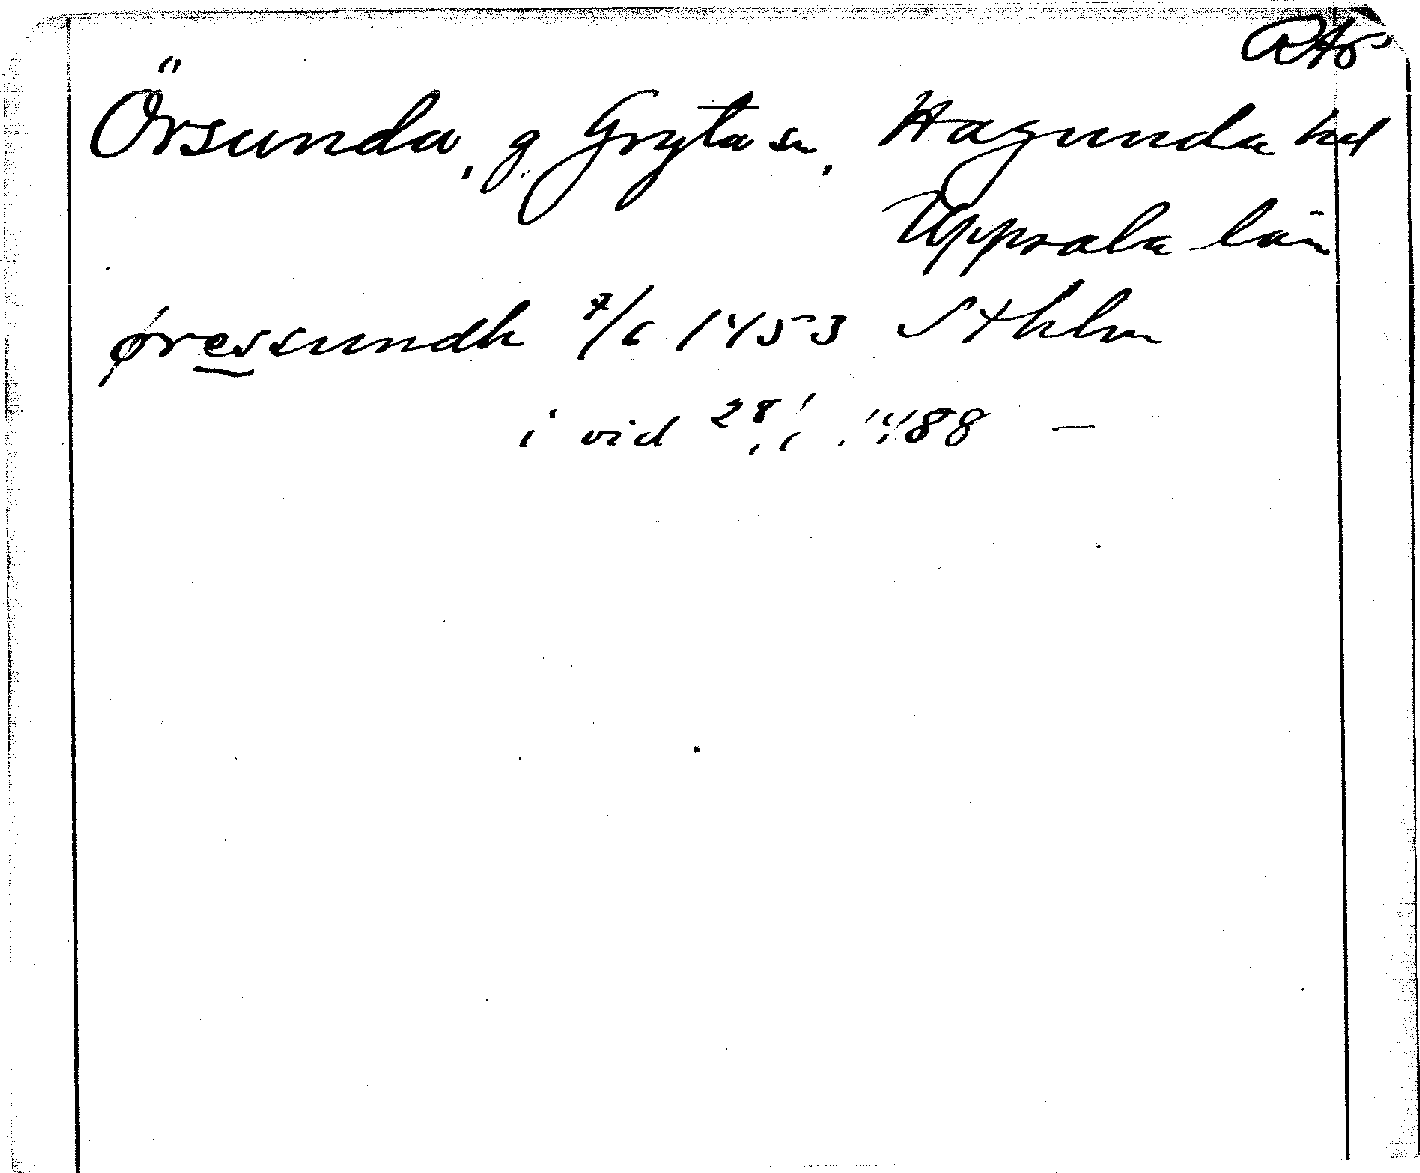 RAp
Örsunda, g. Gryta sn, Hagunda hd
Uppsala län
øressundh 7/6 1453 Sthlm
i vid 28/6 1488 —